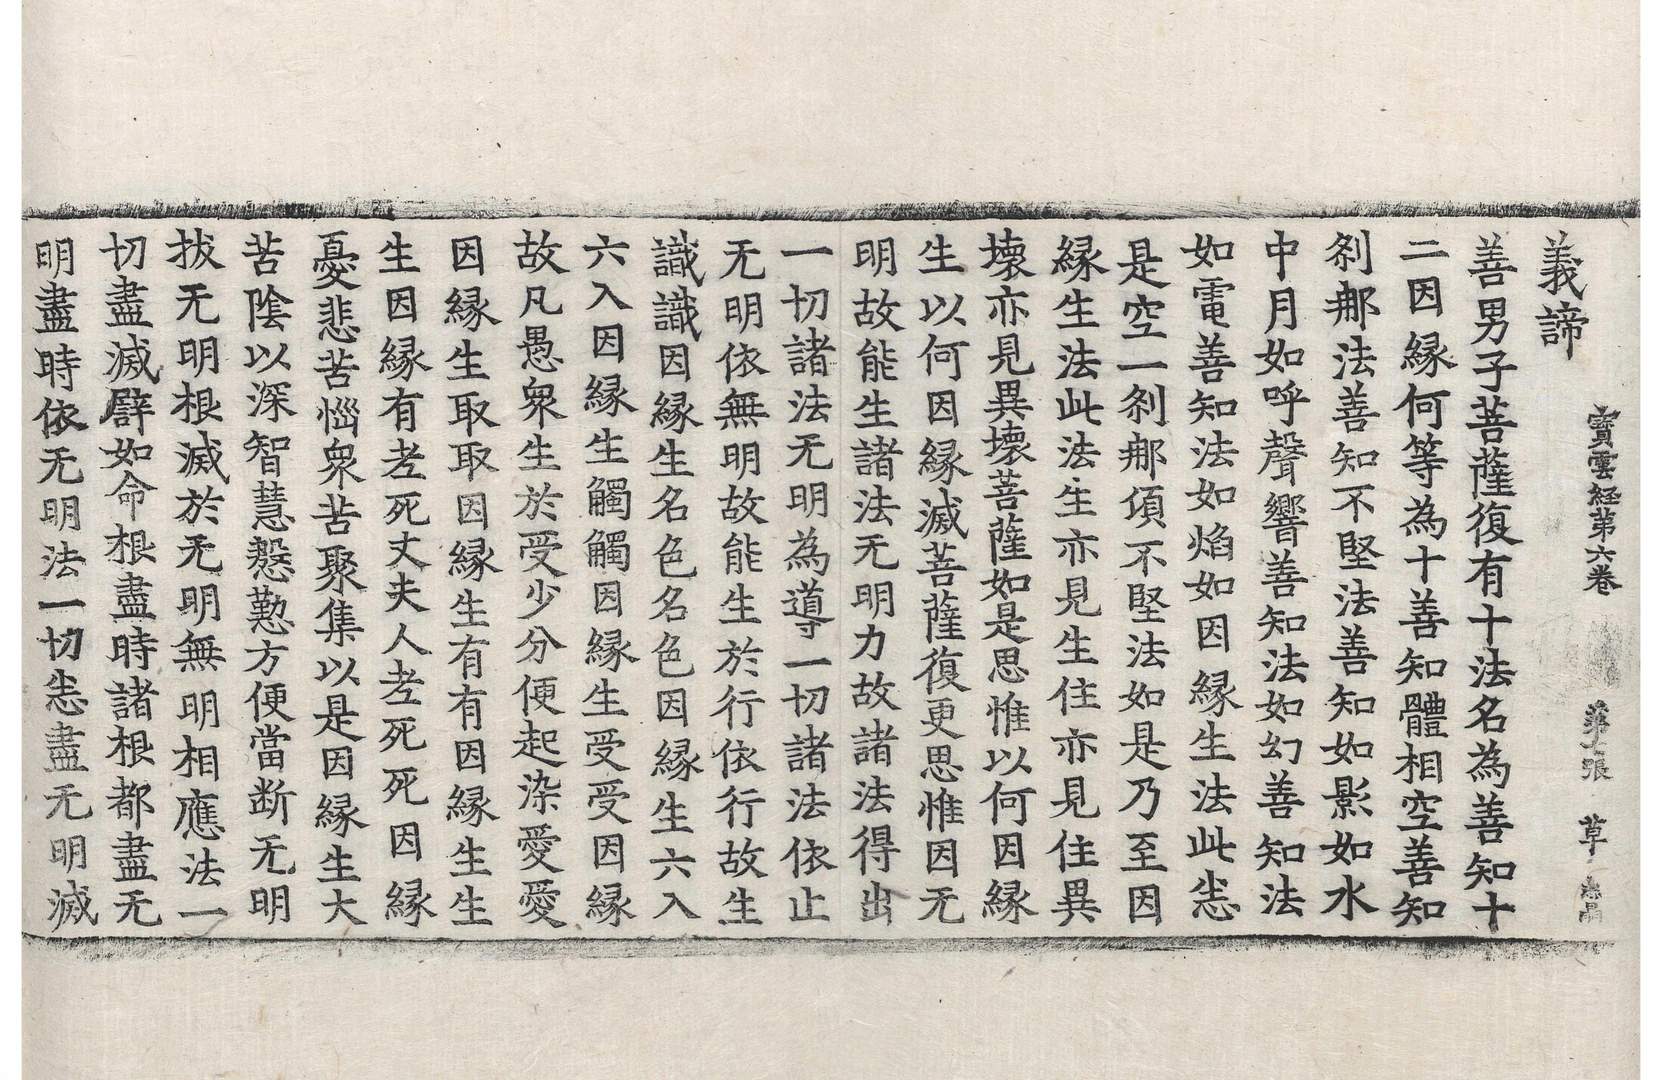 寳雲経第六卷 第 張 草
義諦
善男子菩薩復有十法名為善知十
二因縁何等為十善知體相空善知
刹那法善知不堅法善知如影如水
中月如呼聲響善知法如幻善知法
如電善知法如焰如因縁生法此恙
是空一刹那湏不堅法如是乃至因
縁生法此法生亦見生住亦見住異
壞亦見異壞菩薩如是思惟以何因縁
生以何因縁滅菩薩復更思惟因无
明故能生諸法无明力故諸法得出
一切諸法无明為導一切諸法依止
无明依無明故能生於行依行故生
識識因縁生名色名色因縁生六入
六入因縁生觸觸因縁生受受因縁
故凡愚衆生於受少分便起染愛愛
因縁生取取因縁生有有因縁生生
生因縁有老死丈夫人老死死因縁
憂悲苦惱衆苦聚集以是因縁生大
苦陰以深智慧慇懃方便當断无明
拔无明根滅於无明無明相應法一
切盡滅譬如命根盡時諸根都盡无
明盡時依无明法一切恙盡无明滅